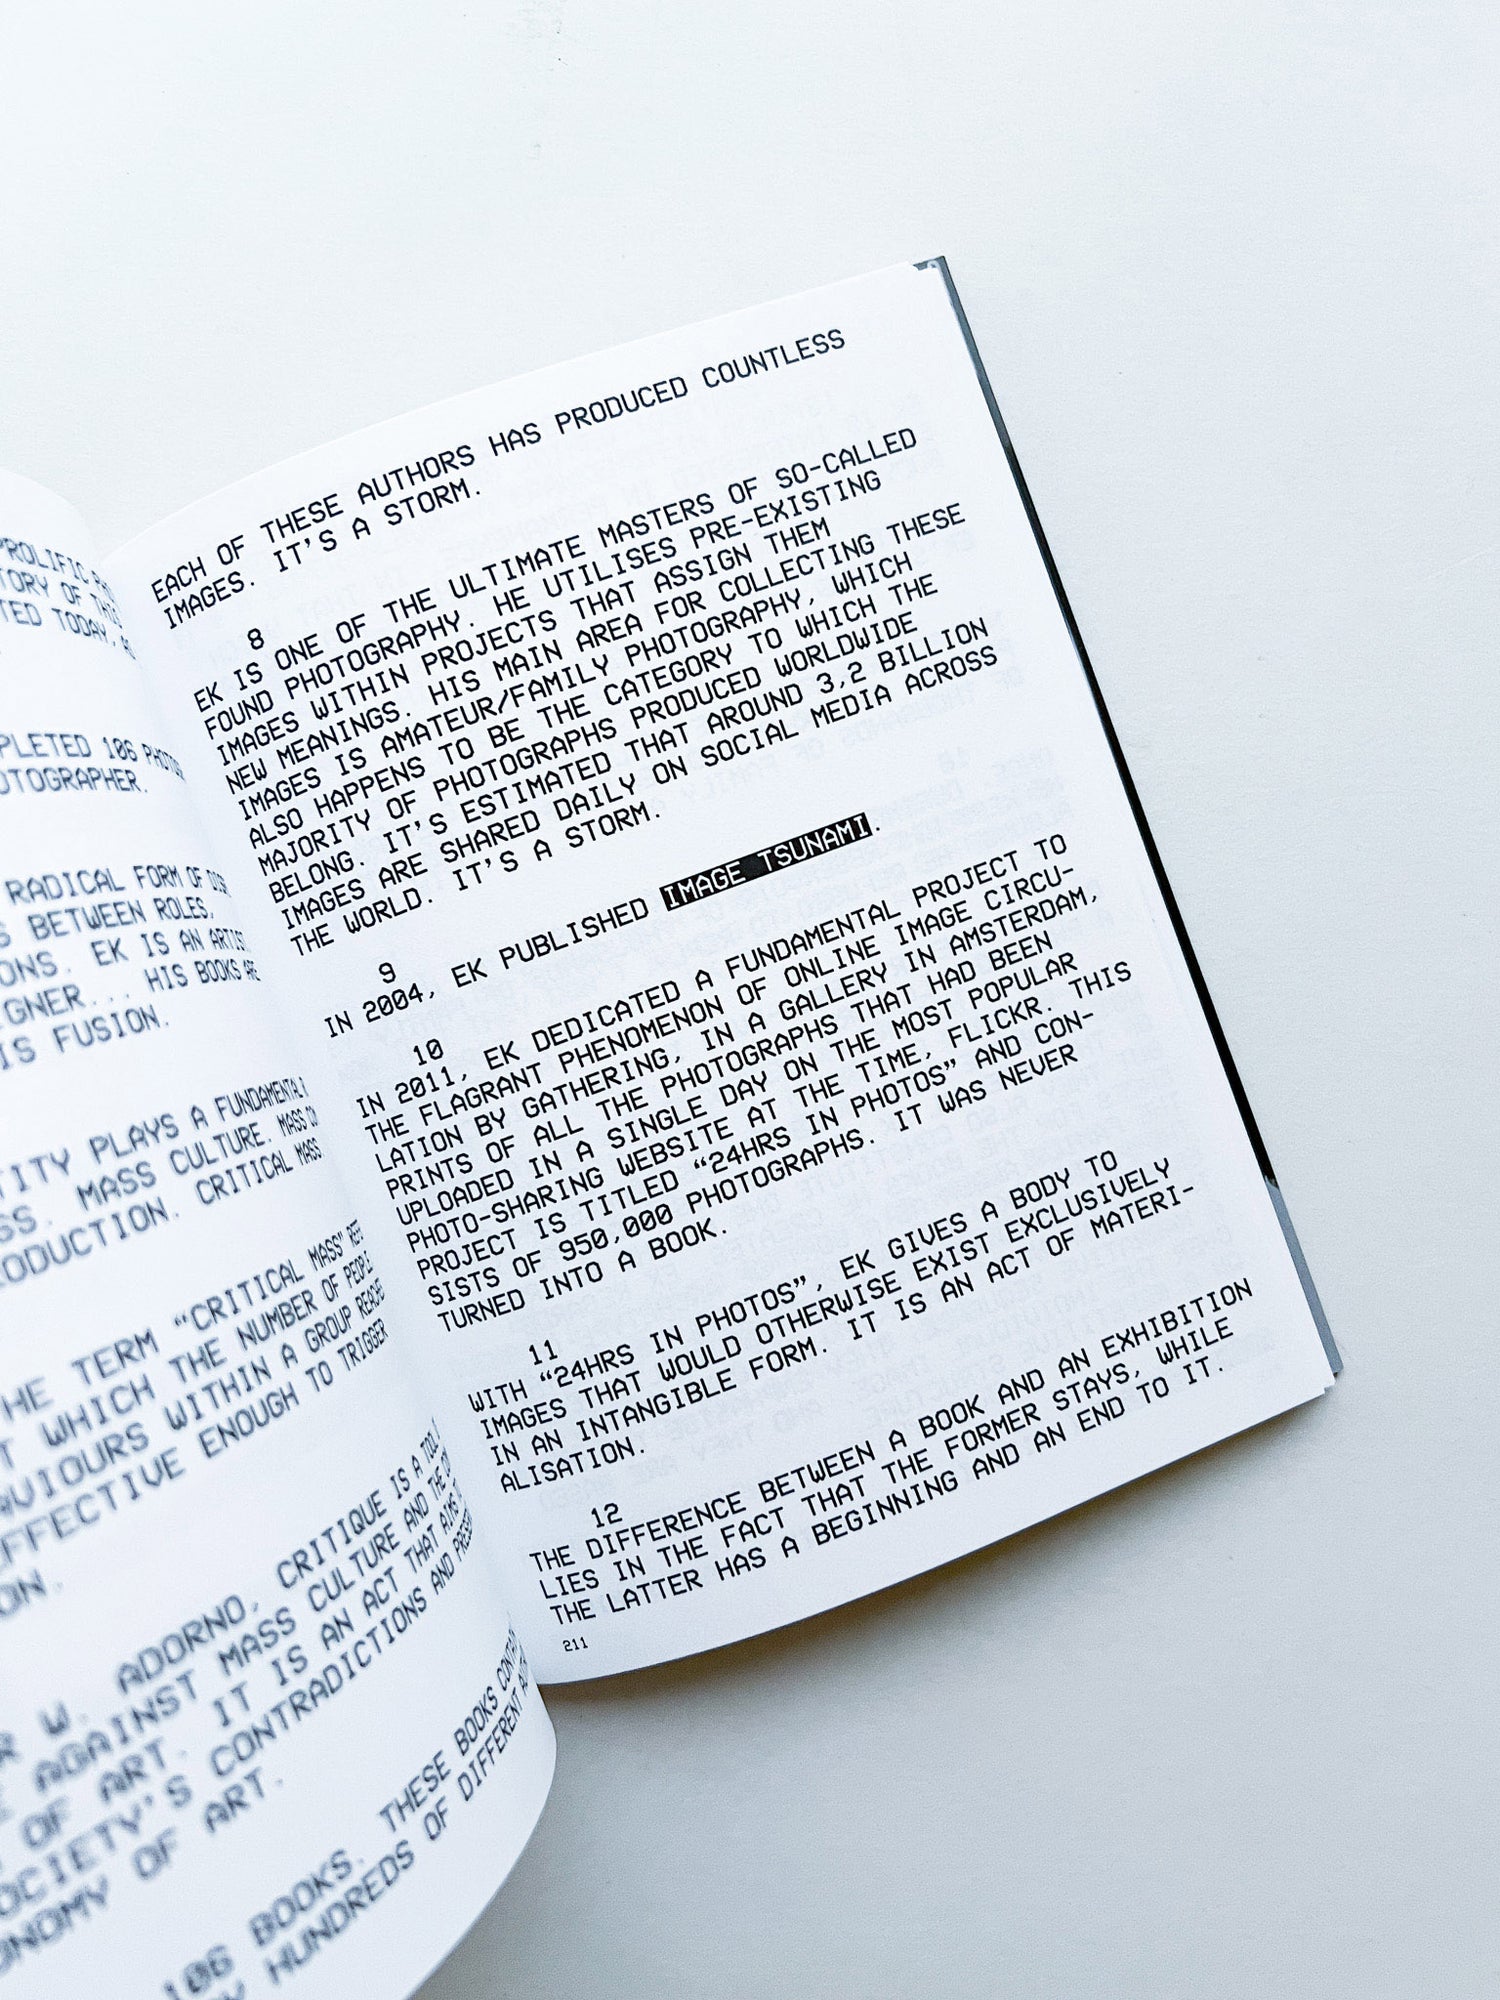 PROLIFIC
TORY OF THIS
TED TODAY,
PLETED 106
OTOGRAPHER.
RADICAL FORM OF
S BETWEEN ROLES,
ONS. EK IS AN ARTIST
IGNER... HIS BOOKS ARE
IS FUSION.
TITY PLAYS A FUNDAMENTAL
SS. MASS CULTURE. MASS
ODUCTION. CRITICAL MASS
HE TERM “CRITICAL MASS”
T WHICH THE NUMBER OF PEOPLE
AVIOURS WITHIN A GROUP
EFFECTIVE ENOUGH TO TRIGGER
ON.
R W. ADORNO, CRITIQUE IS A TOOL
E AGAINST MASS CULTURE AND THE
OF ART. IT IS AN ACT THAT AIMS
OCIETY’S CONTRADICTIONS AND
ONOMY OF ART.
106 BOOKS. THESE BOOKS
HUNDREDS OF DIFFERENT
EACH OF THESE AUTHORS HAS PRODUCED COUNTLESS
IMAGES. IT’S A STORM.
8
EK IS ONE OF THE ULTIMATE MASTERS OF SO-CALLED
FOUND PHOTOGRAPHY. HE UTILISES PRE-EXISTING
IMAGES WITHIN PROJECTS THAT ASSIGN THEM
NEW MEANINGS. HIS MAIN AREA FOR COLLECTING THESE
IMAGES IS AMATEUR/FAMILY PHOTOGRAPHY, WHICH
ALSO HAPPENS TO BE THE CATEGORY TO WHICH THE
MAJORITY OF PHOTOGRAPHS PRODUCED WORLDWIDE
BELONG. IT’S ESTIMATED THAT AROUND 3,2 BILLION
IMAGES ARE SHARED DAILY ON SOCIAL MEDIA ACROSS
THE WORLD. IT’S A STORM.
9
IN 2004, EK PUBLISHED IMAGE TSUNAMI.
10
IN 2011, EK DEDICATED A FUNDAMENTAL PROJECT TO
THE FLAGRANT PHENOMENON OF ONLINE IMAGE CIRCU-
LATION BY GATHERING, IN A GALLERY IN AMSTERDAM,
PRINTS OF ALL THE PHOTOGRAPHS THAT HAD BEEN
UPLOADED IN A SINGLE DAY ON THE MOST POPULAR
PHOTO-SHARING WEBSITE AT THE TIME, FLICKR. THIS
PROJECT IS TITLED “24HRS IN PHOTOS” AND CON-
SISTS OF 950,000 PHOTOGRAPHS. IT WAS NEVER
TURNED INTO A BOOK.
11
WITH “24HRS IN PHOTOS”, EK GIVES A BODY TO
IMAGES THAT WOULD OTHERWISE EXIST EXCLUSIVELY
IN AN INTANGIBLE FORM. IT IS AN ACT OF MATERI-
ALISATION.
12
THE DIFFERENCE BETWEEN A BOOK AND AN EXHIBITION
LIES IN THE FACT THAT THE FORMER STAYS, WHILE
THE LATTER HAS A BEGINNING AND AN END TO IT.
211